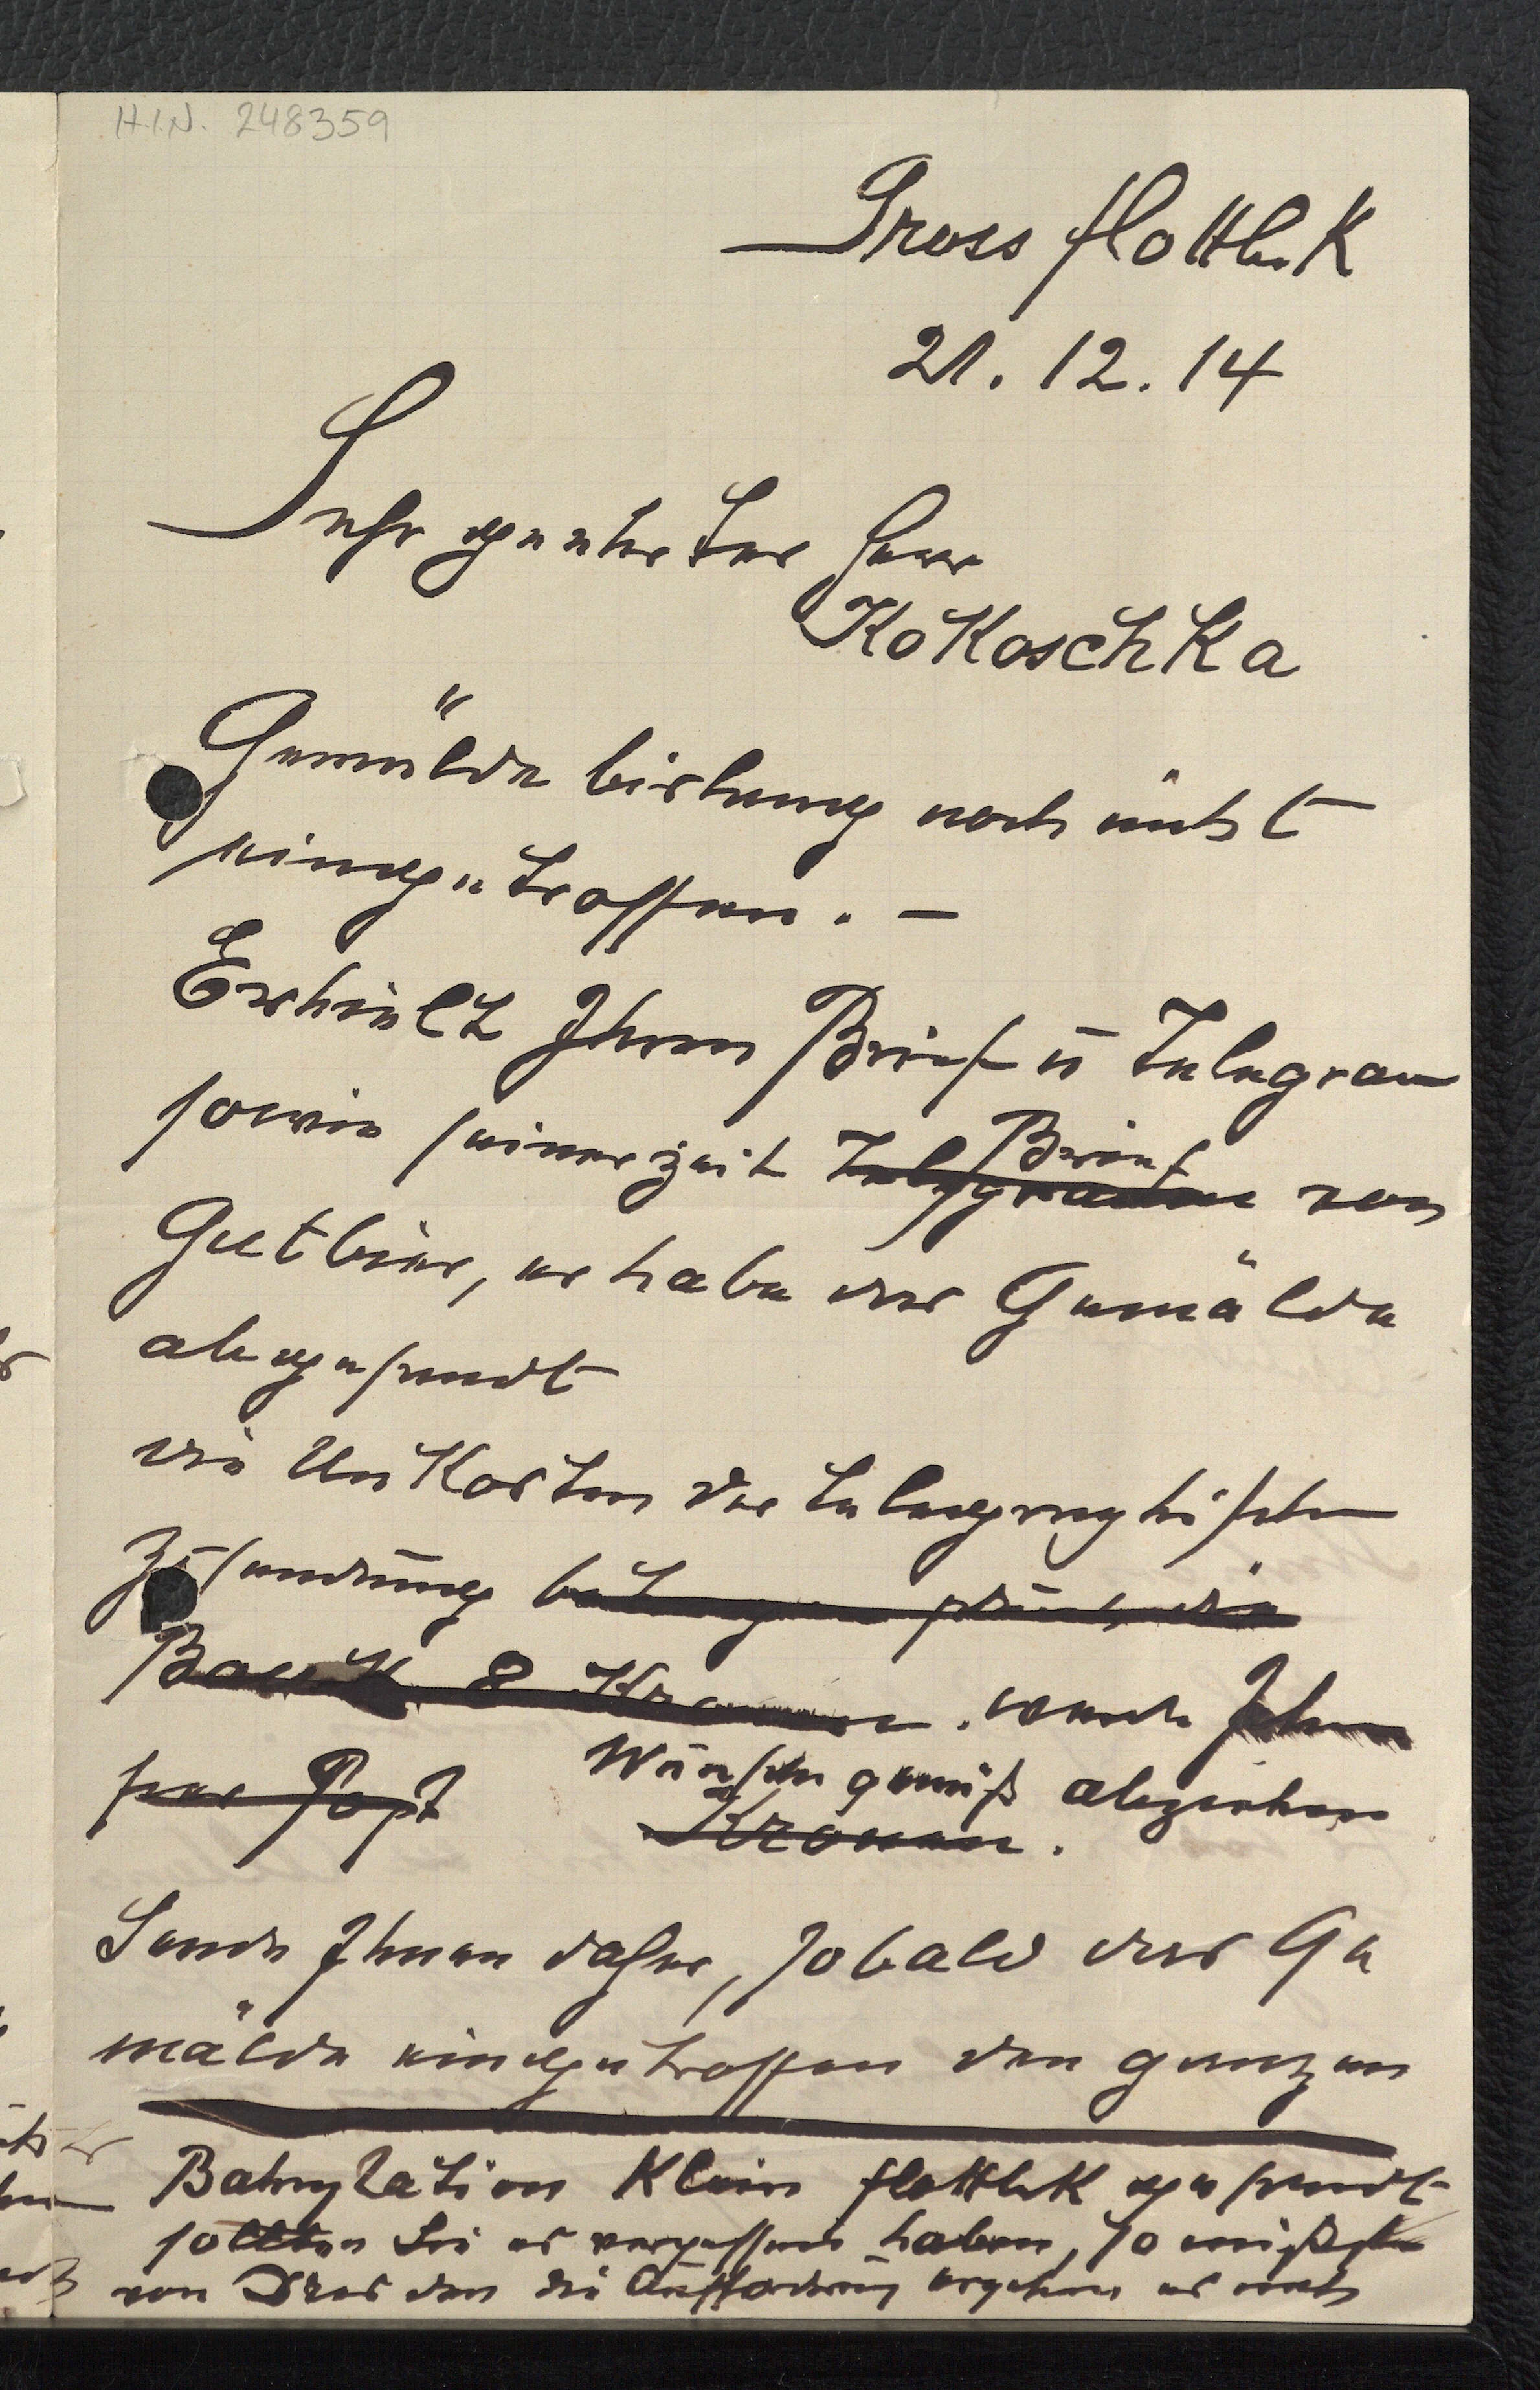 H.I.N. 248359
Gross flottbek
21.12.14
Sehr geehrter Herr
Kokoschka
Gemälde bislang noch nicht
eingetroffen. –
Erhielt Ihren Brief ū Telegram
sowie seinerzeit Telegramm Brief von
Gutbier, er habe das Gemälde
abgesandt
die Unkosten der telegraphischen
Zusendung betragen durch die
Bank 8 Kronen. werde Ihnen
per Post Wunschgemäß abziehen
Kronen.
Sende Ihnen daher, sobald das Ge
mälde eingetroffen den ganzen
Bahnstation Klein flottbek gesandt
sollten Sie es vergessen haben, so müßte
von Dresden die Aufforderung ergehen es nach